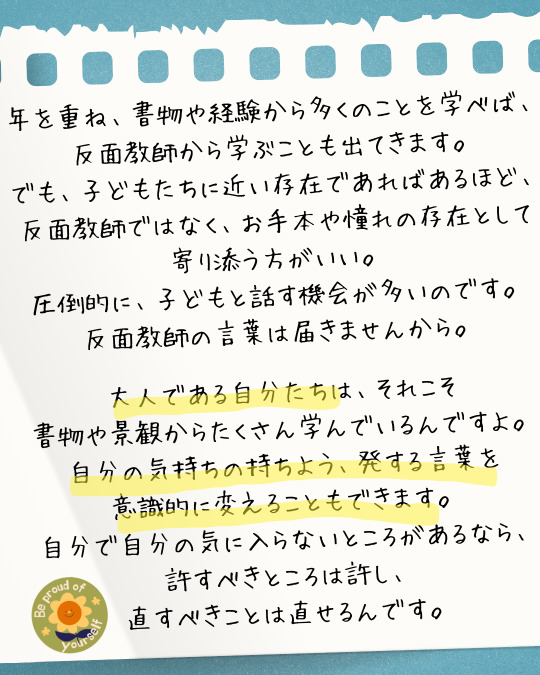 年を重ね、書物や経験から多くのことを学べば、
反面教師から学ぶことも出てきます。
でも、子どもたちに近い存在であればあるほど、
反面教師ではなく、お手本や憧れの存在として
寄り添う方がいい。
圧倒的に、子どもと話す機会が多いのです。
反面教師の言葉は届きませんから。
大人である自分たちは、それこそ
書物や景観からたくさん学んでいるんですよ。
自分の気持ちの持ちよう、発する言葉を
意識的に変えることもできます。
自分で自分の気に入らないところがあるなら、
許すべきところは許し、
直すべきことは直せるんです。
Be proud of
yourself